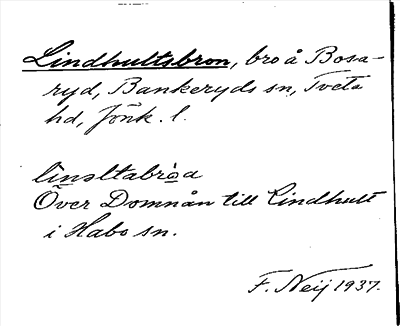 Lindhultsbron, bro å Bosa-
ryd, Bankeryds sn, Tveta
hd, Jönk. l.
linsltabròa
Över Domnån till Lindhult
i Habo sn.
F. Neij 1937.